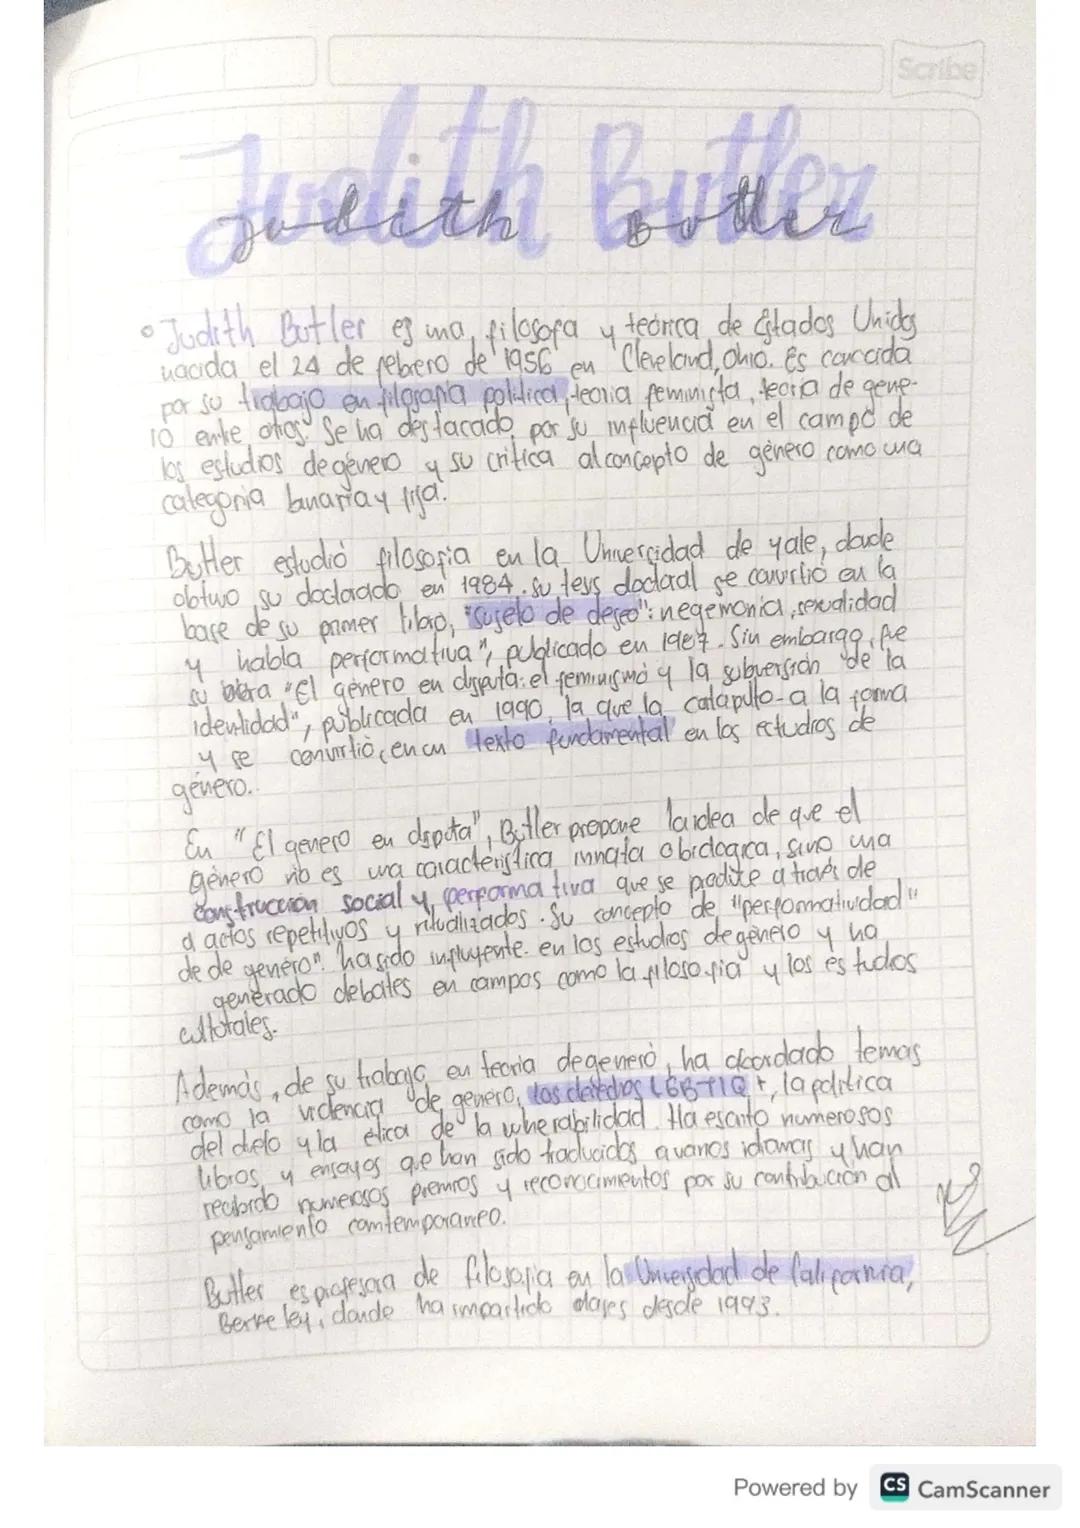 Scribe
Judith Butler
Judith Butler
Judith Butler es una filosofa y teórica de Estados Unidos
nacida el 24 de febrero de 1956 en Cleveland, Ohio. Es conocida
por su trabajo en filosofia politica, teoria feminista, teoria de gene-
ro entre otros. Se ha destacado por su influencia en el campo de
los estudios de género y su critica al concepto de género como una
categoria binaria y fija.
Butler estudió filosofia en la Univercidad de yale, donde
obtuvo su doctorado en 1984. su tesis doctoral se convirtió en la
base de su primer libro, "sujeto de deseo": negemonia, sexualidad
y habla performativa", publicado en 1987. Sin embargo, fue
su obra "El género en disputa: el feminismo y la subversión de la
identidad", publicada en 1990, la que la catapulto a la fama
y se convirtió en un texto fundamental en los estudios de
género.
En "El genero en disputa", Butler propone la idea de que el
género no es una caracteristica innata o biologica, sino una
construcción social y performativa que se produce a través de
d actos repetitivos y ritualizados. Su concepto de "performatividad"
de de genero". ha sido influyente en los estudios de género y ha
generado debates en campos como la filosofia y los estudios
culturales.
Además, de su trabajo en teoria de genero, ha abordado temas
como la violencia de genero, los derechos LGBTIQ+, la politica
del duelo y la ética de la vulnerabilidad. Ha escrito numerosos
libros y ensayos que han sido traducidos a varios idiomas y han
recibido numerosos premios y reconocimientos por su contribución al
pensamiento comtemporaneo.
Butler es profesora de filosofia en la Universidad de California,
Berkeley, donde ha impartido clases desde 1993.
Powered by CS CamScanner